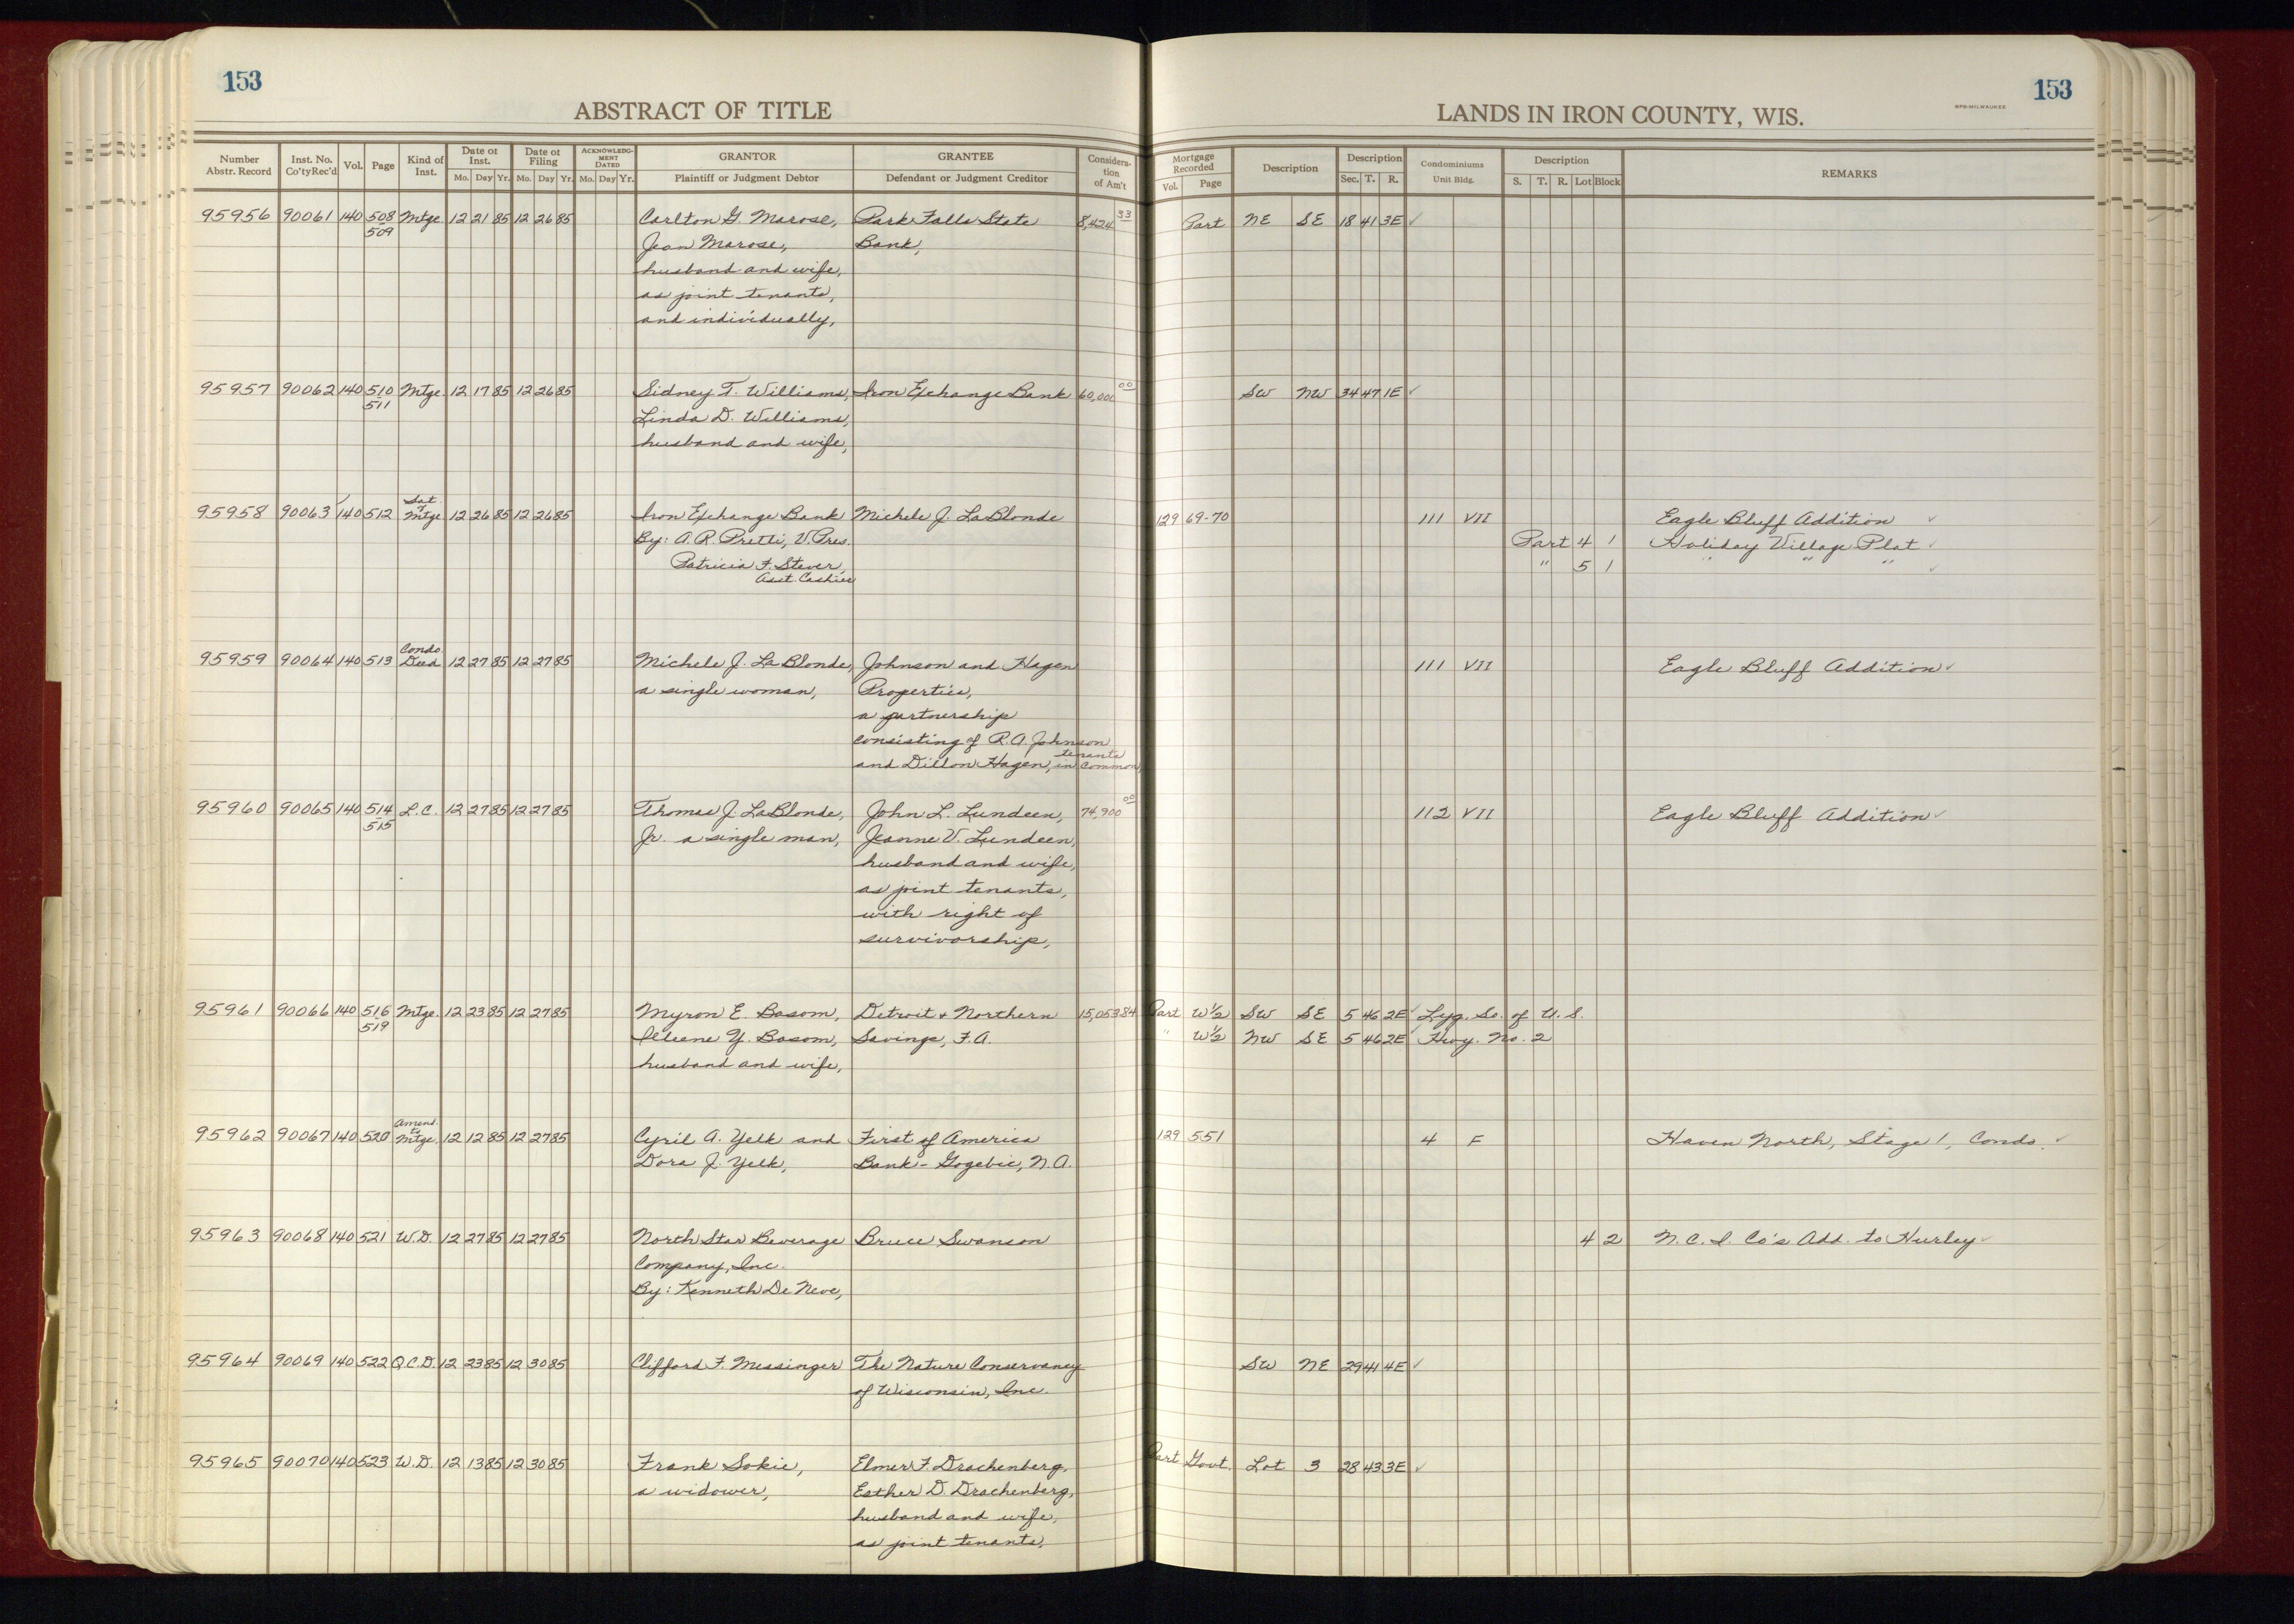 153
153
ABSTRACT OF TITLE
LANDS IN IRON COUNTY, WIS.
WPB-MILWAUKEE
Number Abstr. Record
Inst. No. Co'ty Rec'd
Vol.
Page
Kind of Inst.
Date of Inst.
Mo. Day Yr.
Date of Filing
Mo. Day Yr.
ACKNOWLEDGMENT DATED
Mo. Day Yr.
GRANTOR
Plaintiff or Judgment Debtor
GRANTEE
Defendant or Judgment Creditor
Consideration of Am't
Mortgage Recorded
Vol. Page
Description
Description
Sec. T. R.
Condominiums
Unit Bldg.
Description
S. T. R. Lot Block
REMARKS
95956 90061 140 508 Mtge. 12 21 85 12 26 85 Carlton G. Marose, Park Falls State 8,424 33 Part NE SE 18 41 3E ✓
509 Jean Marose, Bank,
husband and wife,
as joint tenants,
and individually,
95957 90062 140 510 Mtge. 12 17 85 12 26 85 Sidney T. Williams, Iron Exchange Bank 60,000 00 SW NW 34 47 1E ✓
511 Linda D. Williams,
husband and wife,
Sat. of
95958 90063 ✓ 140 512 Mtge 12 26 85 12 26 85 Iron Exchange Bank Michele J. LaBlonde 129 69-70 111 VII Eagle Bluff Addition ✓
By: A.R. Pretti, V. Pres. Part 4 1 Holiday Village Plat ✓
Patricia F. Stever, " 5 1 " " " ✓
Asst. Cashier
Condo
95959 90064 140 513 Deed 12 27 85 12 27 85 Michele J. LaBlonde, Johnson and Hagen 111 VII Eagle Bluff Addition ✓
a single woman, Properties,
a partnership
consisting of R.A. Johnson
and Dillon Hagen, tenants in common,
95960 90065 140 514 L.C. 12 27 85 12 27 85 Thomas J. LaBlonde, John L. Lundeen, 74,900 00 112 VII Eagle Bluff Addition ✓
515 Jr. a single man, Jeanne V. Lundeen,
husband and wife,
as joint tenants,
with right of
survivorship,
95961 90066 140 516 Mtge. 12 23 85 12 27 85 Myron E. Basom, Detroit + Northern 15,053.84 Part W½ SW SE 5 46 2E ✓ Lyg. So. of U.S.
519 Illeene Y. Basom, Savings, F.A. " W½ NW SE 5 46 2E ✓ Hwy. No. 2
husband and wife,
Amend. to
95962 90067 140 520 Mtge. 12 12 85 12 27 85 Cyril A. Yelk and First of America 129 551 4 F Haven North, Stage 1, Condo. ✓
Dora J. Yelk, Bank - Gogebic, N.A.
95963 90068 140 521 W.D. 12 27 85 12 27 85 North Star Beverage Bruce Swanson 4 2 N.C.I. Co's Add. to Hurley ✓
Company, Inc.
By: Kenneth De Neve,
95964 90069 140 522 Q.C.D. 12 23 85 12 30 85 Clifford F. Messinger The Nature Conservancy SW NE 29 41 4E ✓
of Wisconsin, Inc.
95965 90070 140 523 W.D. 12 13 85 12 30 85 Frank Sokie, Elmer F. Drachenberg, Part Govt. Lot 3 28 43 3E ✓
a widower, Esther D. Drachenberg,
husband and wife,
as joint tenants,